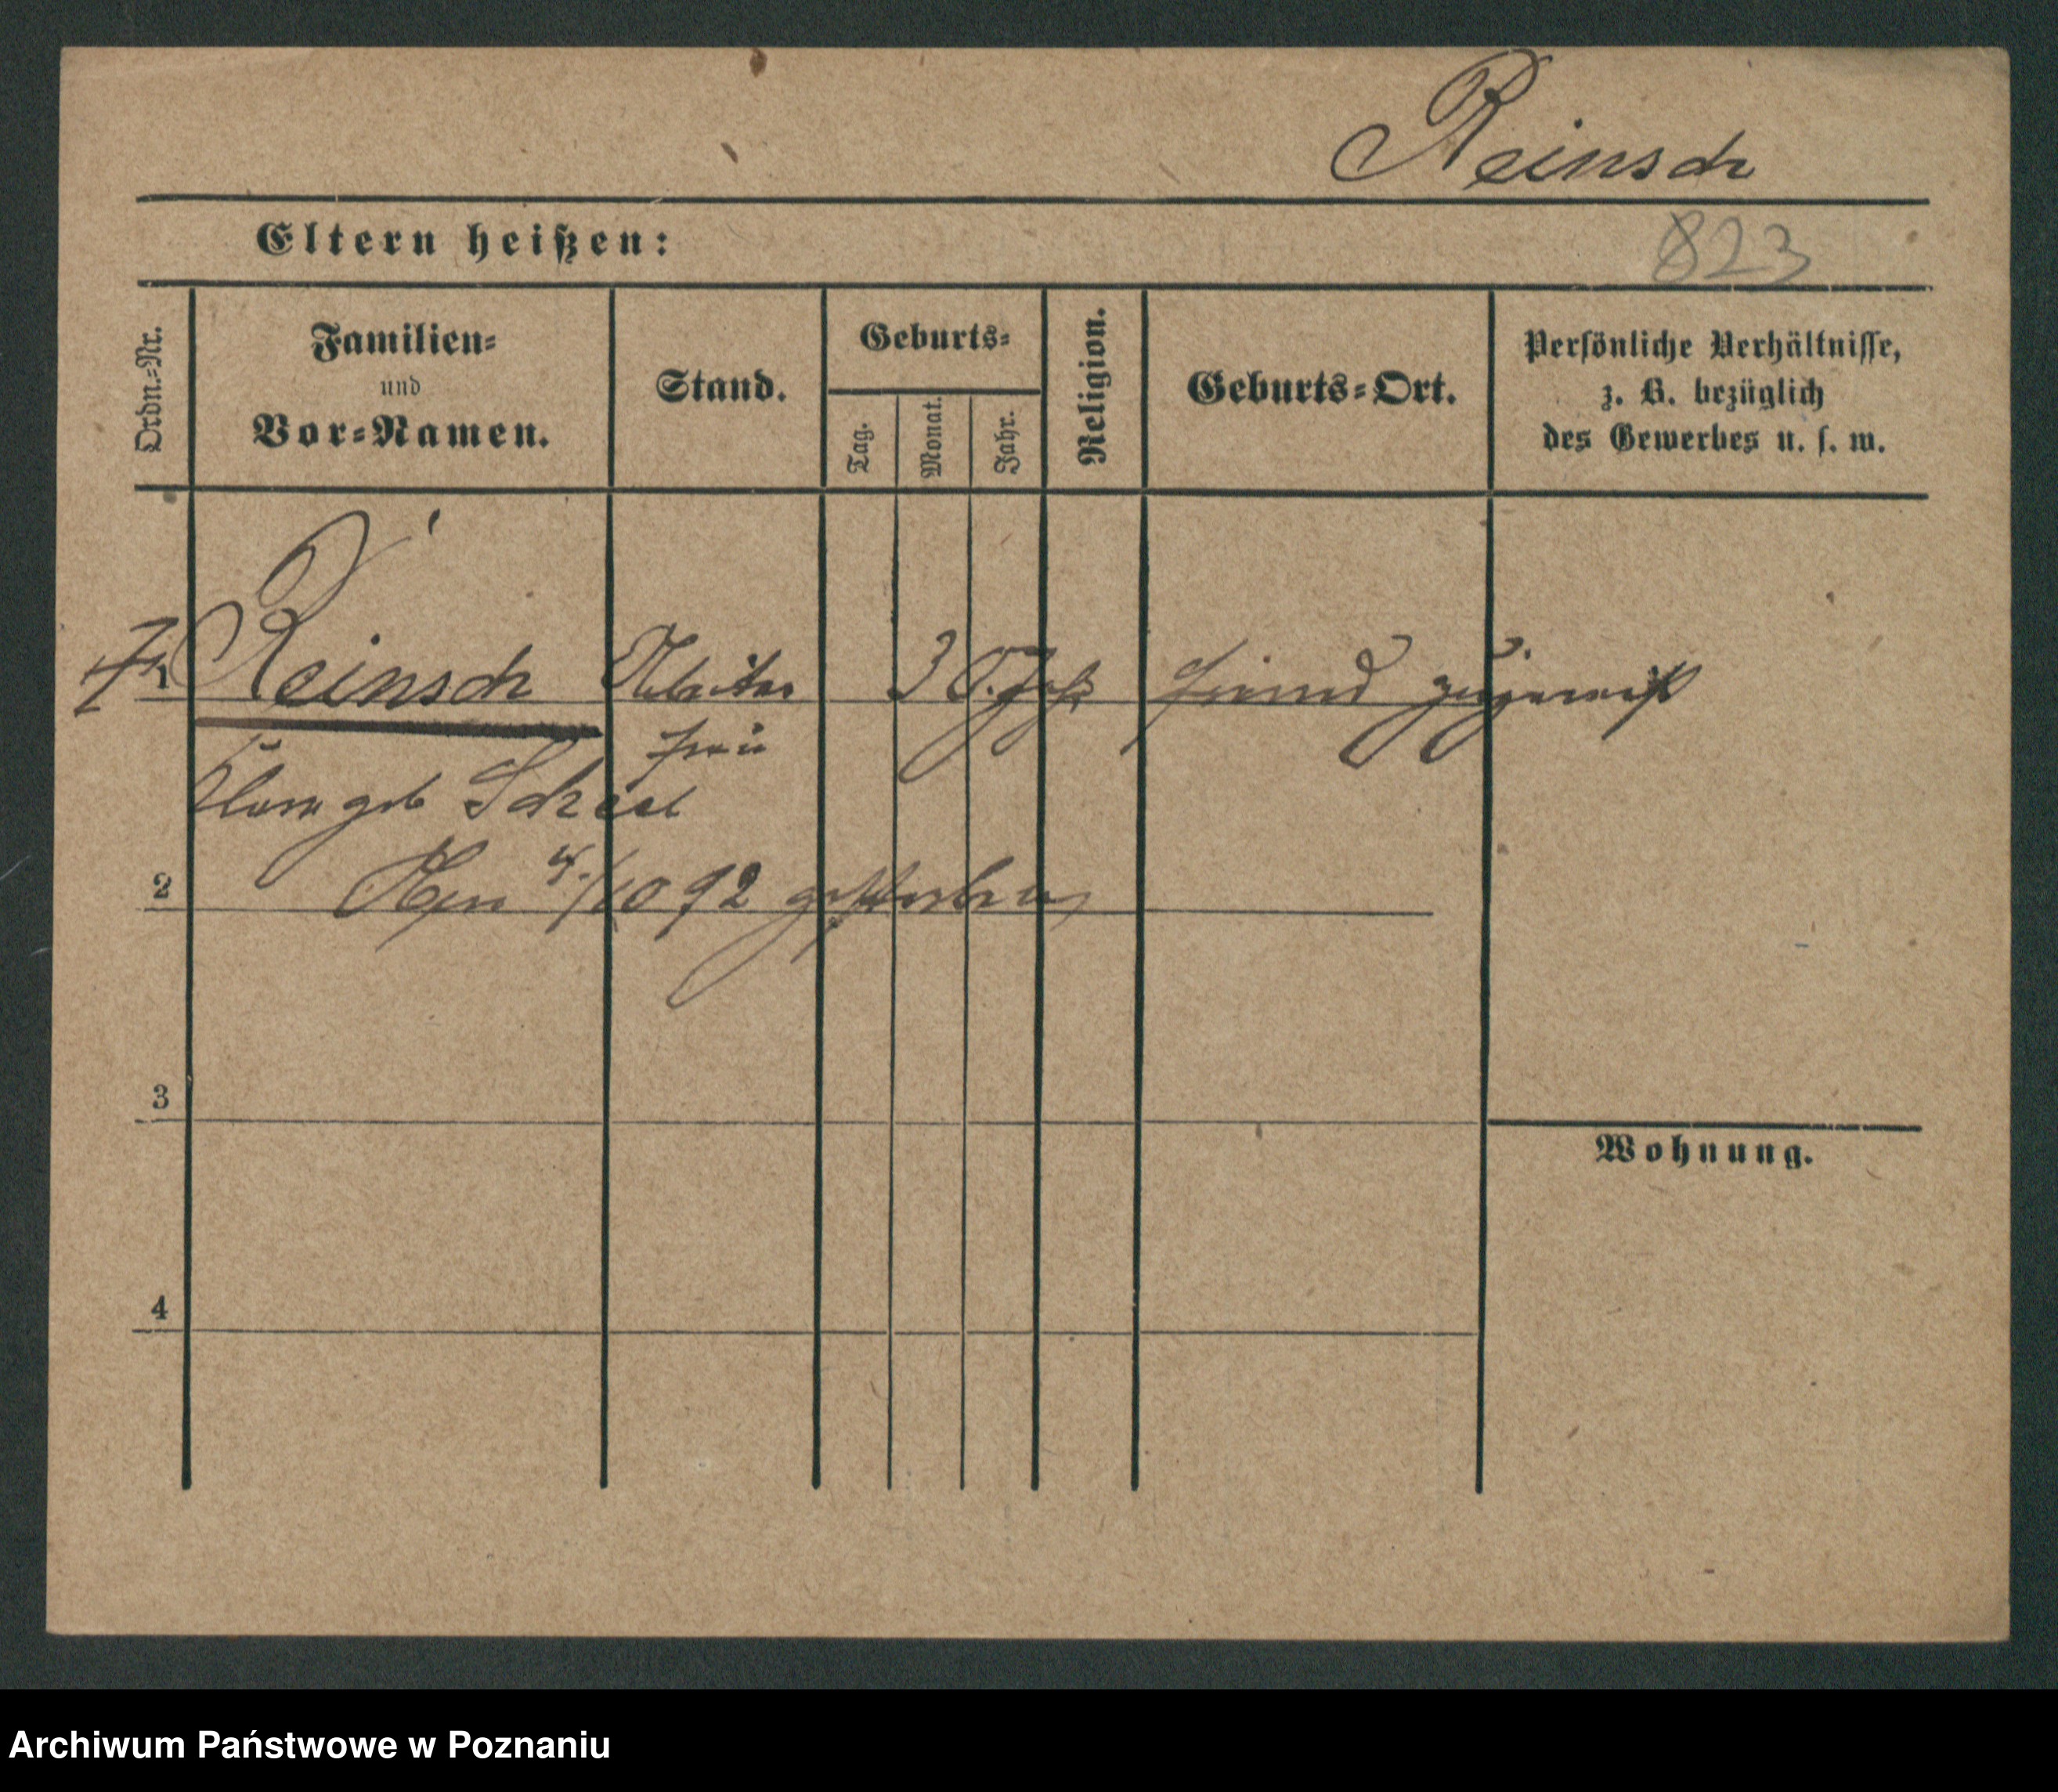 Reinsch
Eltern heißen:
823
Ordn.-Nr.
Familien-
und
Vor-Namen.
Stand.
Geburts-
Tag.
Monat.
Jahr.
Religion.
Geburts-Ort.
Persönliche Verhältnisse,
z. B. bezüglich
des Gewerbes u. s. w.
Reinsch Arbeiter 30. fremd zugereist
frau
Clara geb Scheel
2
4./10 92 gestorben
3
Wohnung.
4
Archiwum Państwowe w Poznaniu